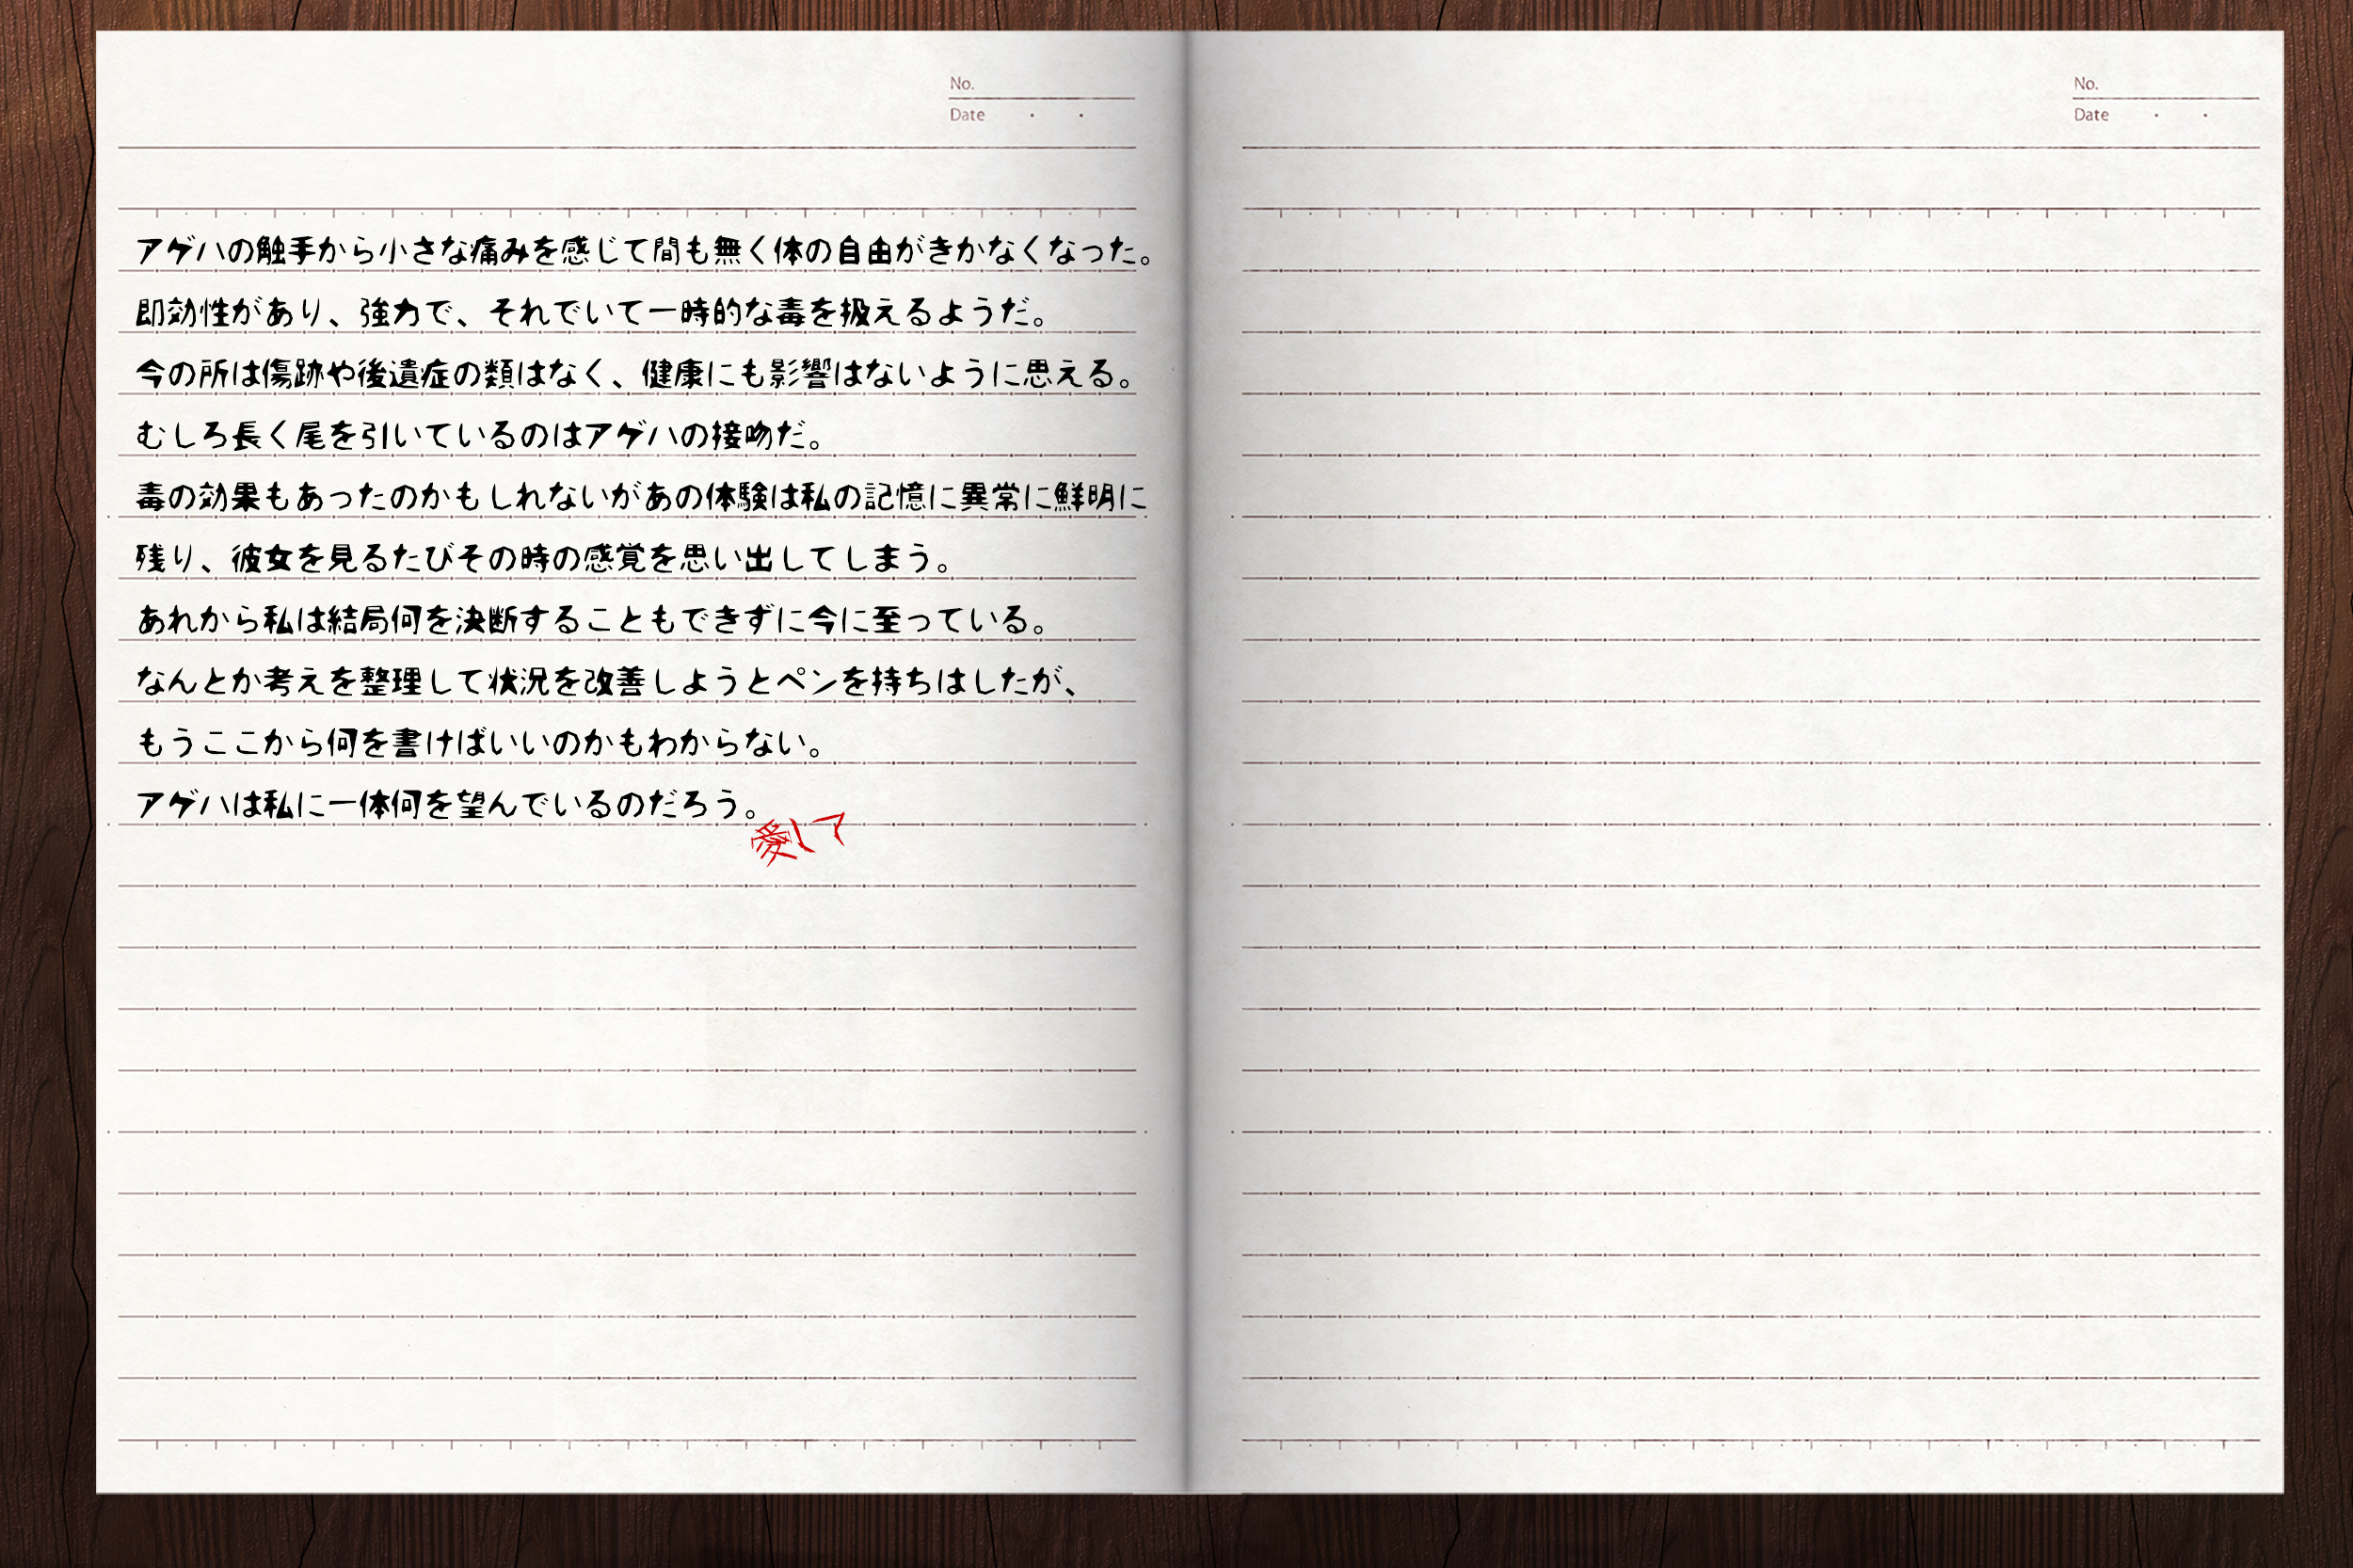 No.
Date
No.
Date
アゲハの触手から小さな痛みを感じて間も無く体の自由がきかなくなった。
即効性があり、強力で、それでいて一時的な毒を扱えるようだ。
今の所は傷跡や後遺症の類はなく、健康にも影響はないように思える。
むしろ長く尾を引いているのはアゲハの接吻だ。
毒の効果もあったのかもしれないがあの体験は私の記憶に異常に鮮明に
残り、彼女を見るたびその時の感覚を思い出してしまう。
あれから私は結局何を決断することもできずに今に至っている。
なんとか考えを整理して状況を改善しようとペンを持ちはしたが、
もうここから何を書けばいいのかもわからない。
アゲハは私に一体何を望んでいるのだろう。
愛して